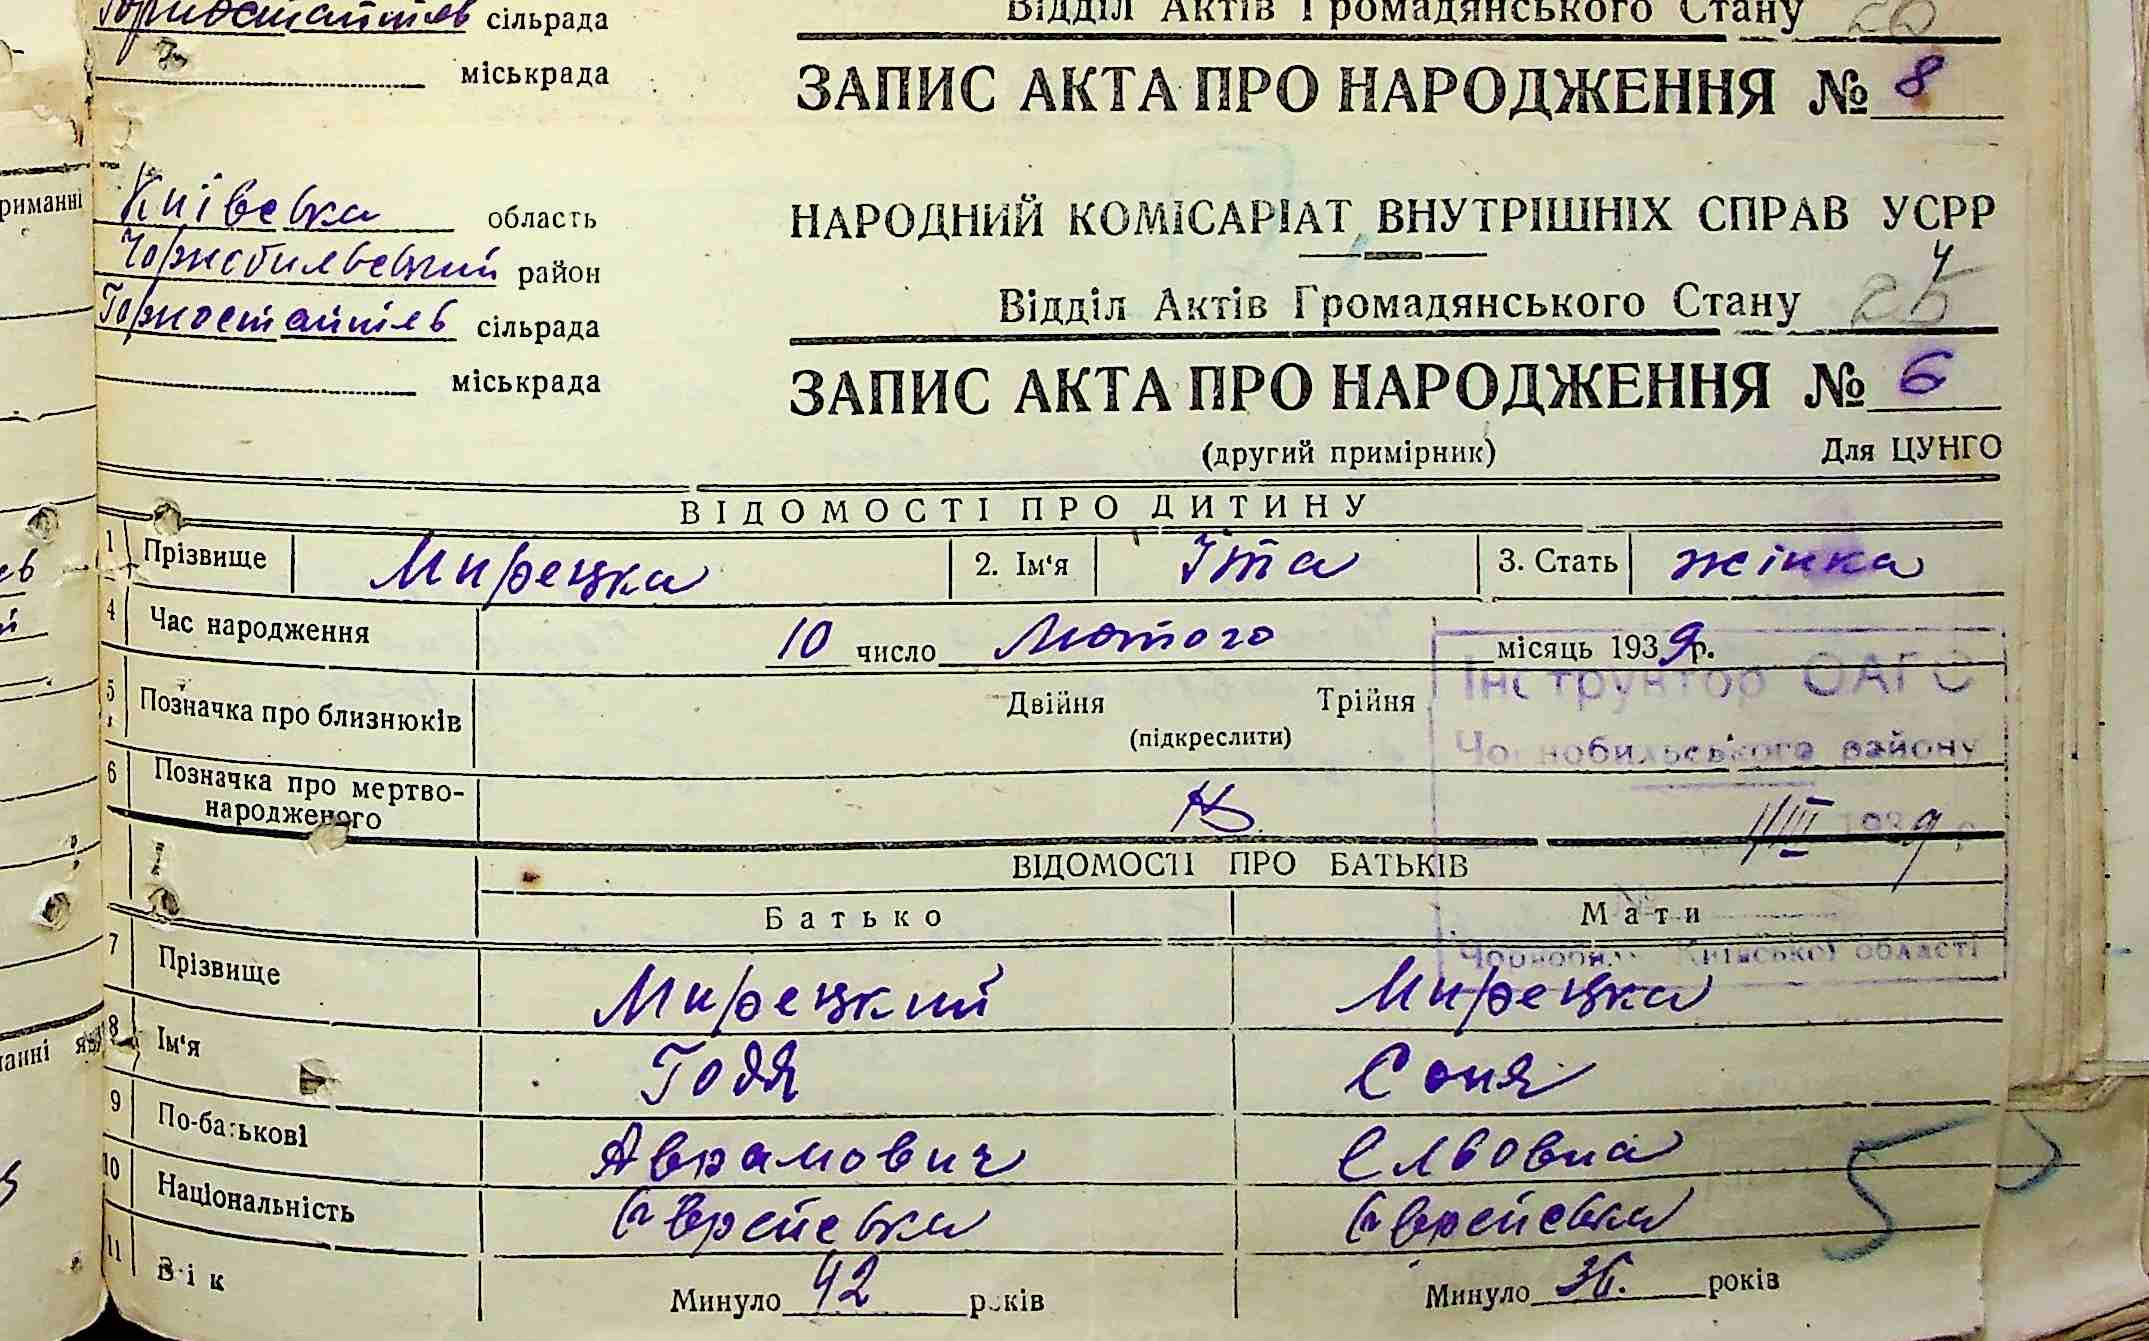 Горностайпів сільрада
Відділ Актів Громадянського Стану 26
міськрада
ЗАПИС АКТА ПРО НАРОДЖЕННЯ № 8
Київська область
НАРОДНИЙ КОМІСАРІАТ ВНУТРІШНІХ СПРАВ УСРР
Чорнобильський район
Відділ Актів Громадянського Стану 25
Горностайпів сільрада
міськрада
ЗАПИС АКТА ПРО НАРОДЖЕННЯ № 6
(другий примірник) Для ЦУНГО
ВІДОМОСТІ ПРО ДИТИНУ
1 Прізвище Мирецка 2. Ім'я Їта 3. Стать жінка
4 Час народження 10 число Лютого місяць 1939 р.
Інструктор ОАГС
5 Позначка про близнюків Двійня Трійня
(підкреслити)
Чорнобильського району
6 Позначка про мертво-
народженого
1/III 1939 р.
ВІДОМОСТІ ПРО БАТЬКІВ
Батько Мати
Чорнобиль Київської області
7 Прізвище Мирецкий Мирецка
8 Ім'я Годя Соня
9 По-батькові Аврамович Ельовна
10 Національність Єврейська Єврейська
11 Вік Минуло 42 років Минуло 36. років